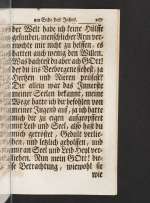 am Ende des Jahres.
der Welt habe ich keine Hülfe
gefunden, menschlicher Rath ver-
mochte mir nicht zu helffen, es
hatten auch wenig den Willen.
Was dachtest du aber ach GOtt!
der du ins Verborgene siehest, ja
Hertzen und Nieren prüfest?
Dir allein war das Innerste
meiner Seelen bekannt, meine
Wege hatte ich dir befohlen von
meiner Jugend auf, ja ich hatte
mich dir zu eigen aufgeopffert
mit Leib und Seel, also hast du
getröstet, Gedult verlie-
hen, und letzlich geholffen, und
mir an Seel und Leib Heyl ver-
liehen. Nun mein GOtt! die-
se Betrachtung, wiewohl sie
wie